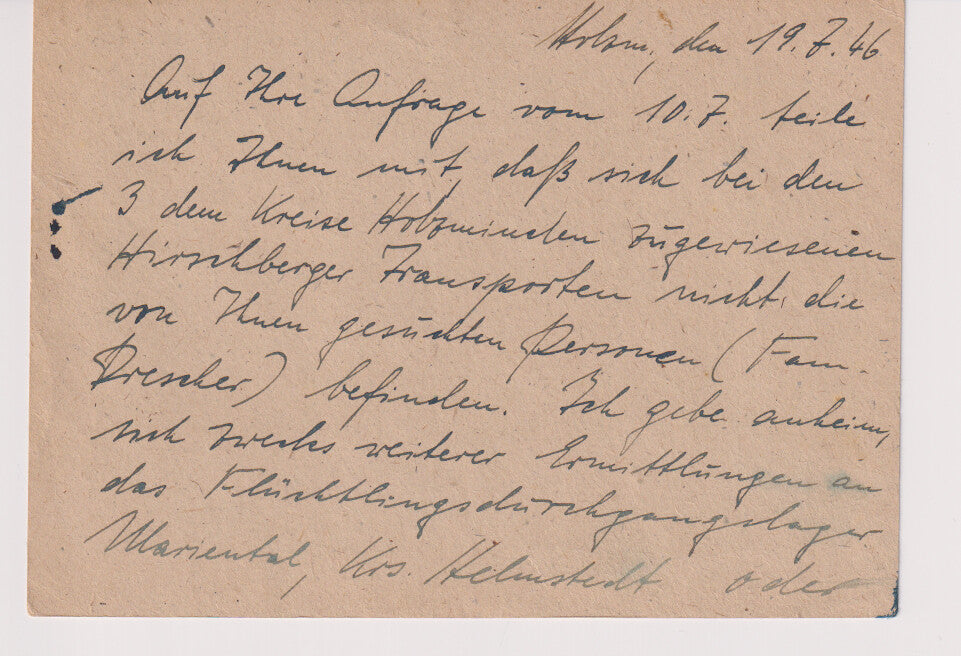 Holzm, den 19.7.46
Auf Ihre Anfrage vom 10.7. teile
ich Ihnen mit, daß sich bei den
3 dem Kreise Holzminden zugewiesenen
Hirschberger Transporten nicht die
von Ihnen gesuchten Personen (Fam.
Drescher) befinden. Ich gebe anheim,
sich zwecks weiterer Ermittlungen an
das Flüchtlingsdurchgangslager
Mariental, Krs. Helmstedt oder